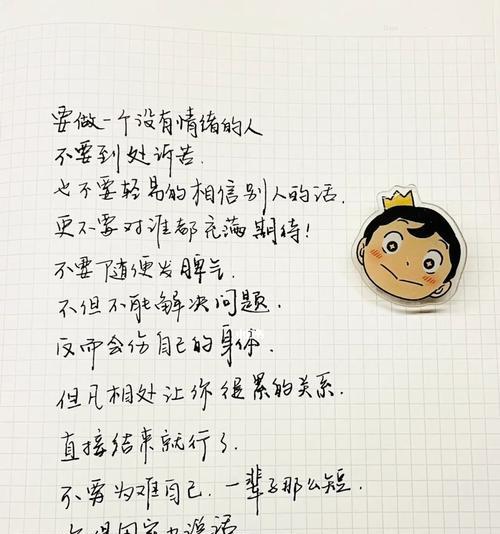 要做一个没有情绪的人
不要到处诉苦.
也不要轻易的相信别人的话.
更不要对谁都充满期待!
不要随便发脾气.
不但不能解决问题.
反而会伤自己的身体.
但凡相处让你很累的关系.
直接结束就行了
不要为难自己.一辈子那么短.